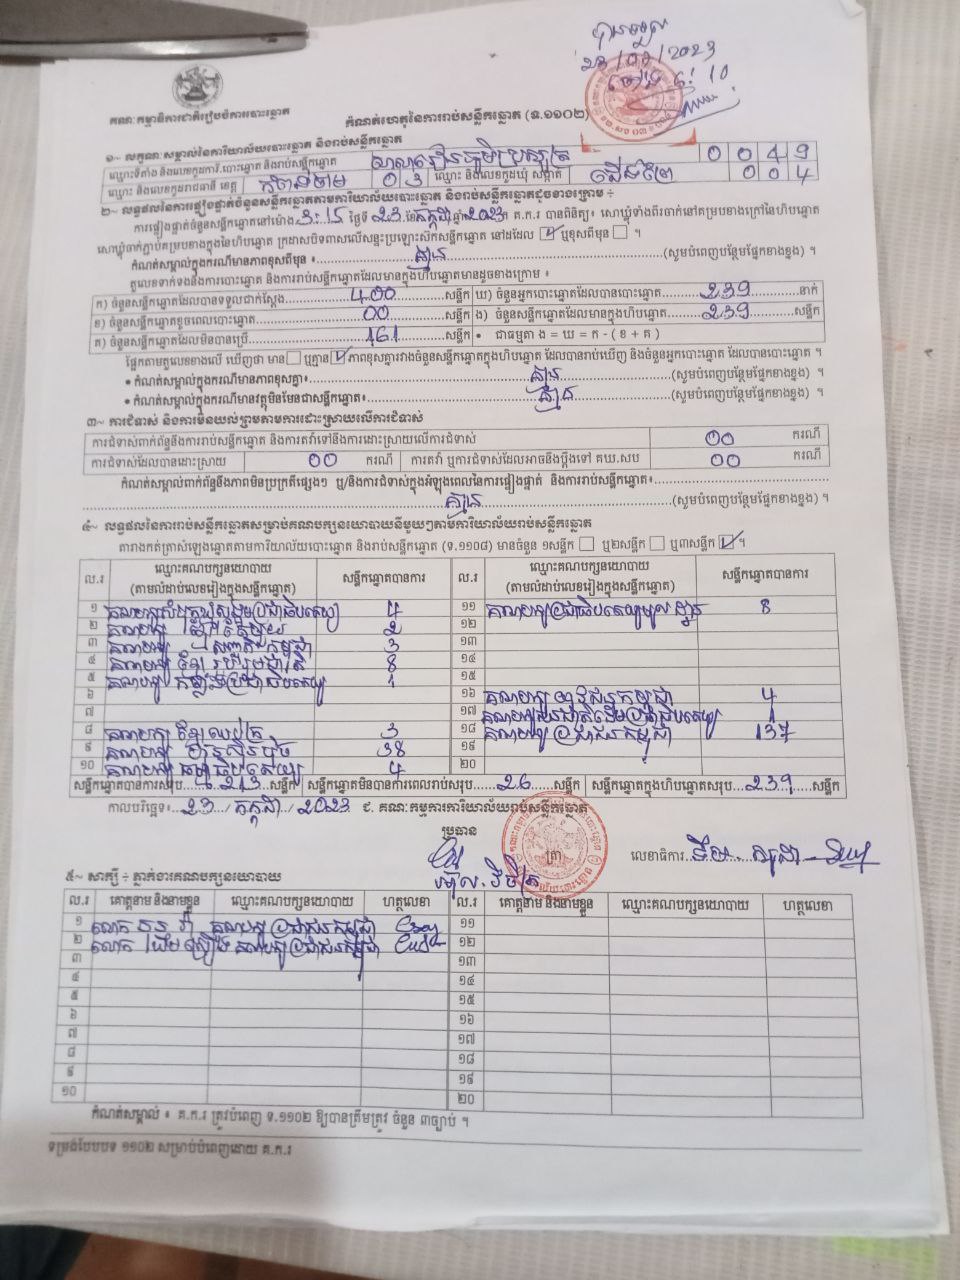 បានទទួល
23/07/2023
ម៉ោង 6:10
គណៈកម្មាធិការជាតិរៀបចំការបោះឆ្នោត
កំណត់ហេតុនៃការរាប់សន្លឹកឆ្នោត (ទ.១១០២)
១~ លក្ខណៈសម្គាល់នៃការិយាល័យបោះឆ្នោត និងរាប់សន្លឹកឆ្នោត
ឈ្មោះទីតាំង និងលេខកូដការិ.បោះឆ្នោត និងរាប់សន្លឹកឆ្នោត សាលារៀនភូមិ 0049
ឈ្មោះ និងលេខកូដរាជធានី ខេត្ត កំពង់ចាម 03 ឈ្មោះ និងលេខកូដឃុំ សង្កាត់ 004
២~ លទ្ធផលនៃការផ្ទៀងផ្ទាត់ចំនួនសន្លឹកឆ្នោតតាមការិយាល័យបោះឆ្នោត និងរាប់សន្លឹកឆ្នោតដូចខាងក្រោម ÷
ការផ្ទៀងផ្ទាត់ចំនួនសន្លឹកឆ្នោតនៅម៉ោង 3:15 ថ្ងៃទី 23 ខែ កក្កដា ឆ្នាំ 2023 គ.ក.រ បានពិនិត្យ៖ សោឃ្លុំទាំងពីរចាក់នៅគម្របខាងក្រៅនៃហិបឆ្នោត
សោឃ្លុំចាក់ភ្ជាប់គម្របខាងក្នុងនៃហិបឆ្នោត ក្រដាសបិទពាសលើសន្ទះប្រឡោះស៊កសន្លឹកឆ្នោត នៅដដែល ✓ ឬខុសពីមុន ។
កំណត់សម្គាល់ក្នុងករណីមានភាពខុសពីមុន ៖ គ្មាន (សូមបំពេញបន្ថែមផ្នែកខាងខ្នង) ។
តួលេខទាក់ទងនឹងការបោះឆ្នោត និងការរាប់សន្លឹកឆ្នោតដែលមានក្នុងហិបឆ្នោតមានដូចខាងក្រោម ៖
ក) ចំនួនសន្លឹកឆ្នោតដែលបានទទួលជាក់ស្តែង 400 សន្លឹក ឃ) ចំនួនអ្នកបោះឆ្នោតដែលបានបោះឆ្នោត 239 នាក់
ខ) ចំនួនសន្លឹកឆ្នោតខូចពេលបោះឆ្នោត 00 សន្លឹក ង) ចំនួនសន្លឹកឆ្នោតដែលមានក្នុងហិបឆ្នោត 239 សន្លឹក
គ) ចំនួនសន្លឹកឆ្នោតដែលមិនបានប្រើ 161 សន្លឹក • ជាធម្មតា ង = ឃ = ក - ( ខ + គ )
ផ្អែកតាមតួលេខខាងលើ ឃើញថា មាន ឬគ្មាន ✓ ភាពខុសគ្នារវាងចំនួនសន្លឹកឆ្នោតក្នុងហិបឆ្នោត ដែលបានរាប់ឃើញ និងចំនួនអ្នកបោះឆ្នោត ដែលបានបោះឆ្នោត ។
• កំណត់សម្គាល់ក្នុងករណីមានភាពខុសគ្នា៖ គ្មាន (សូមបំពេញបន្ថែមផ្នែកខាងខ្នង) ។
• កំណត់សម្គាល់ក្នុងករណីមានវត្ថុមិនមែនជាសន្លឹកឆ្នោត៖ គ្មាន (សូមបំពេញបន្ថែមផ្នែកខាងខ្នង) ។
៣~ ការជំទាស់ និងការមិនយល់ព្រមតាមការដោះស្រាយលើការជំទាស់
ការជំទាស់ពាក់ព័ន្ធនឹងការរាប់សន្លឹកឆ្នោត និងការតវ៉ាទៅនឹងការដោះស្រាយលើការជំទាស់ 00 ករណី
ការជំទាស់ដែលបានដោះស្រាយ 00 ករណី ការតវ៉ា ឬការជំទាស់ដែលអាចនឹងប្តឹងទៅ គឃ.សប 00 ករណី
កំណត់សម្គាល់ពាក់ព័ន្ធនឹងភាពមិនប្រក្រតីផ្សេងៗ ឬ/និងការជំទាស់ក្នុងអំឡុងពេលនៃការផ្ទៀងផ្ទាត់ និងការរាប់សន្លឹកឆ្នោត៖
គ្មាន (សូមបំពេញបន្ថែមផ្នែកខាងខ្នង) ។
៤~ លទ្ធផលនៃការរាប់សន្លឹកឆ្នោតសម្រាប់គណបក្សនយោបាយនីមួយៗតាមការិយាល័យរាប់សន្លឹកឆ្នោត
តារាងកត់ត្រាសំឡេងឆ្នោតតាមការិយាល័យបោះឆ្នោត និងរាប់សន្លឹកឆ្នោត (ទ.១១០៨) មានចំនួន ១សន្លឹក ឬ២សន្លឹក ឬ៣សន្លឹក ✓ ។
ល.រ ឈ្មោះគណបក្សនយោបាយ (តាមលំដាប់លេខរៀងក្នុងសន្លឹកឆ្នោត) សន្លឹកឆ្នោតបានការ ល.រ ឈ្មោះគណបក្សនយោបាយ (តាមលំដាប់លេខរៀងក្នុងសន្លឹកឆ្នោត) សន្លឹកឆ្នោតបានការ
១ គណបក្សសំបុកឃ្មុំសង្គមប្រជាធិបតេយ្យ 4 ១១ គណបក្សប្រជាធិបតេយ្យមូលដ្ឋាន 8
២ គណបក្ស ខ្មែរតែមួយ 2 ១២
៣ គណបក្ស សញ្ជាតិកម្ពុជា 3 ១៣
៤ គណបក្ស ខ្មែររួបរួមជាតិ 8 ១៤
៥ គណបក្ស កម្លាំងប្រជាធិបតេយ្យ 1 ១៥
៦ ១៦ គណបក្ស យុវជនកម្ពុជា 4
៧ ១៧ គណបក្សជនជាតិដើមប្រជាធិបតេយ្យ 1
៨ គណបក្ស ខ្មែរឈប់ក្រ 3 ១៨ គណបក្ស ប្រជាជនកម្ពុជា 137
៩ គណបក្ស ហ្វ៊ុនស៊ិនប៉ិច 38 ១៩
១០ គណបក្ស ធម្មាធិបតេយ្យ 4 ២០
សន្លឹកឆ្នោតបានការសរុប 213 សន្លឹក សន្លឹកឆ្នោតមិនបានការពេលរាប់សរុប 26 សន្លឹក សន្លឹកឆ្នោតក្នុងហិបឆ្នោតសរុប 239 សន្លឹក
កាលបរិច្ឆេទ៖ 23 / កក្កដា / 2023 ជ. គណៈកម្មការការិយាល័យរាប់សន្លឹកឆ្នោត
ប្រធាន
លេខាធិការ
៥~ សាក្សី ÷ ភ្នាក់ងារគណបក្សនយោបាយ
ល.រ គោត្តនាម និងនាមខ្លួន ឈ្មោះគណបក្សនយោបាយ ហត្ថលេខា ល.រ គោត្តនាម និងនាមខ្លួន ឈ្មោះគណបក្សនយោបាយ ហត្ថលេខា
១ លោក គណបក្ស ប្រជាជនកម្ពុជា ១១
២ លោក គណបក្ស ប្រជាជនកម្ពុជា ១២
៣ ១៣
៤ ១៤
៥ ១៥
៦ ១៦
៧ ១៧
៨ ១៨
៩ ១៩
១០ ២០
កំណត់សម្គាល់ ៖ គ.ក.រ ត្រូវបំពេញ ទ.១១០២ ឱ្យបានត្រឹមត្រូវ ចំនួន ៣ច្បាប់ ។
ទម្រង់បែបបទ ១១០២ សម្រាប់បំពេញដោយ គ.ក.រ